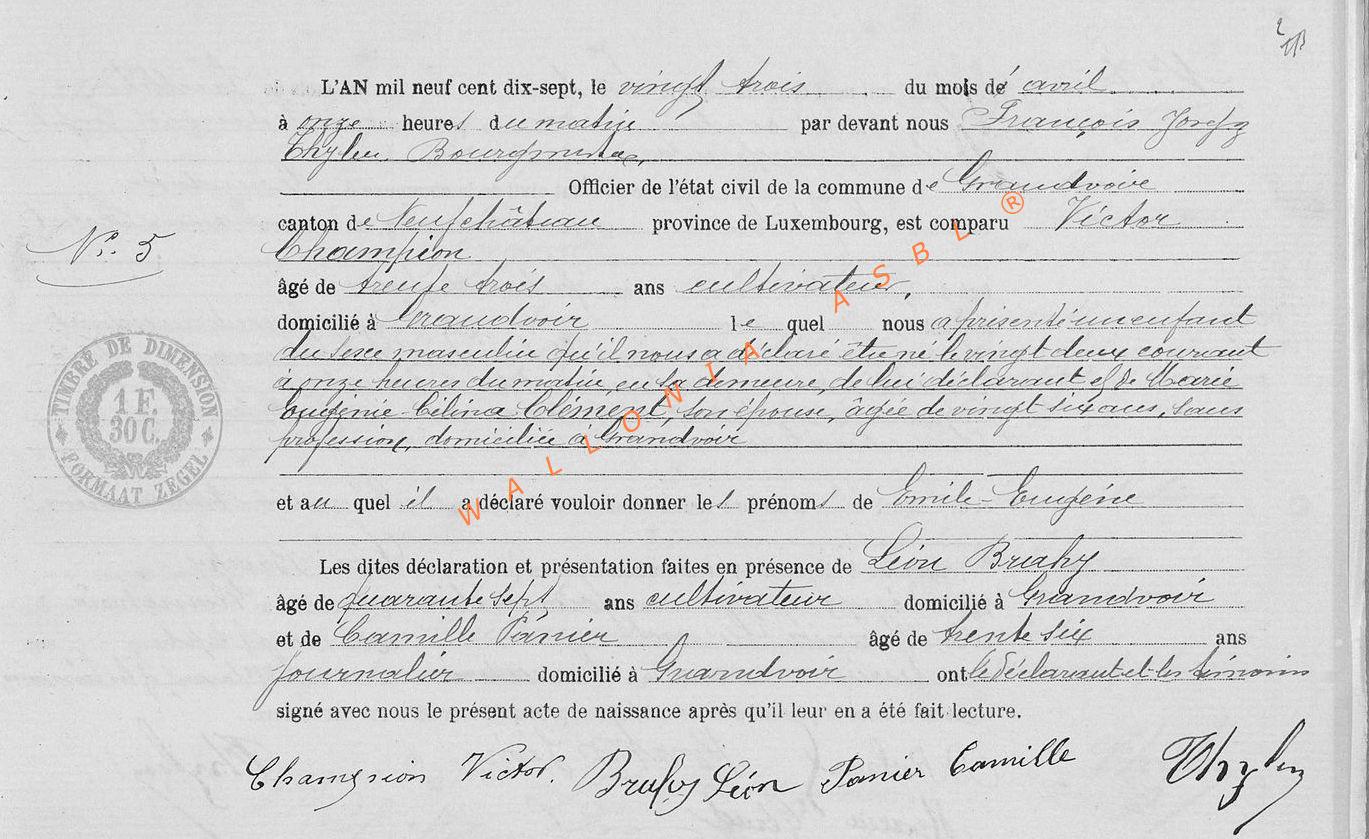 L'AN mil neuf cent dix-sept, le vingt trois du mois de avril
à onze heures du matin par devant nous François Joseph
Thylen Bourgmestre,
Officier de l'état civil de la commune de Grandvoire
canton de Neufchâteau province de Luxembourg, est comparu Victor
Nº 5
Champion
âgé de trente trois ans cultivateur,
domicilié à Grandvoir lequel nous a présenté un enfant
du sexe masculin qu'il nous a déclaré être né le vingt deux courant
à onze heures du matin, en sa demeure, de lui déclarant et de Marie
Eugénie Célina Clément, son épouse, âgée de vingt six ans, sans
profession, domiciliée à Grandvoir
et au quel il a déclaré vouloir donner les prénoms de Emile-Eugène
Les dites déclaration et présentation faites en présence de Léon
âgé de quarante sept ans cultivateur domicilié à Grandvoir
et de Camille Panier âgé de trente six ans
journalier domicilié à Grandvoir ont le déclarant et les témoins
signé avec nous le présent acte de naissance après qu'il leur en a été fait lecture.
Champion Victor. Léon Panier Camille Thylen
TIMBRE DE DIMENSION
1 F.
30 C.
FORMAAT ZEGEL
WALLONIA ASBL ®